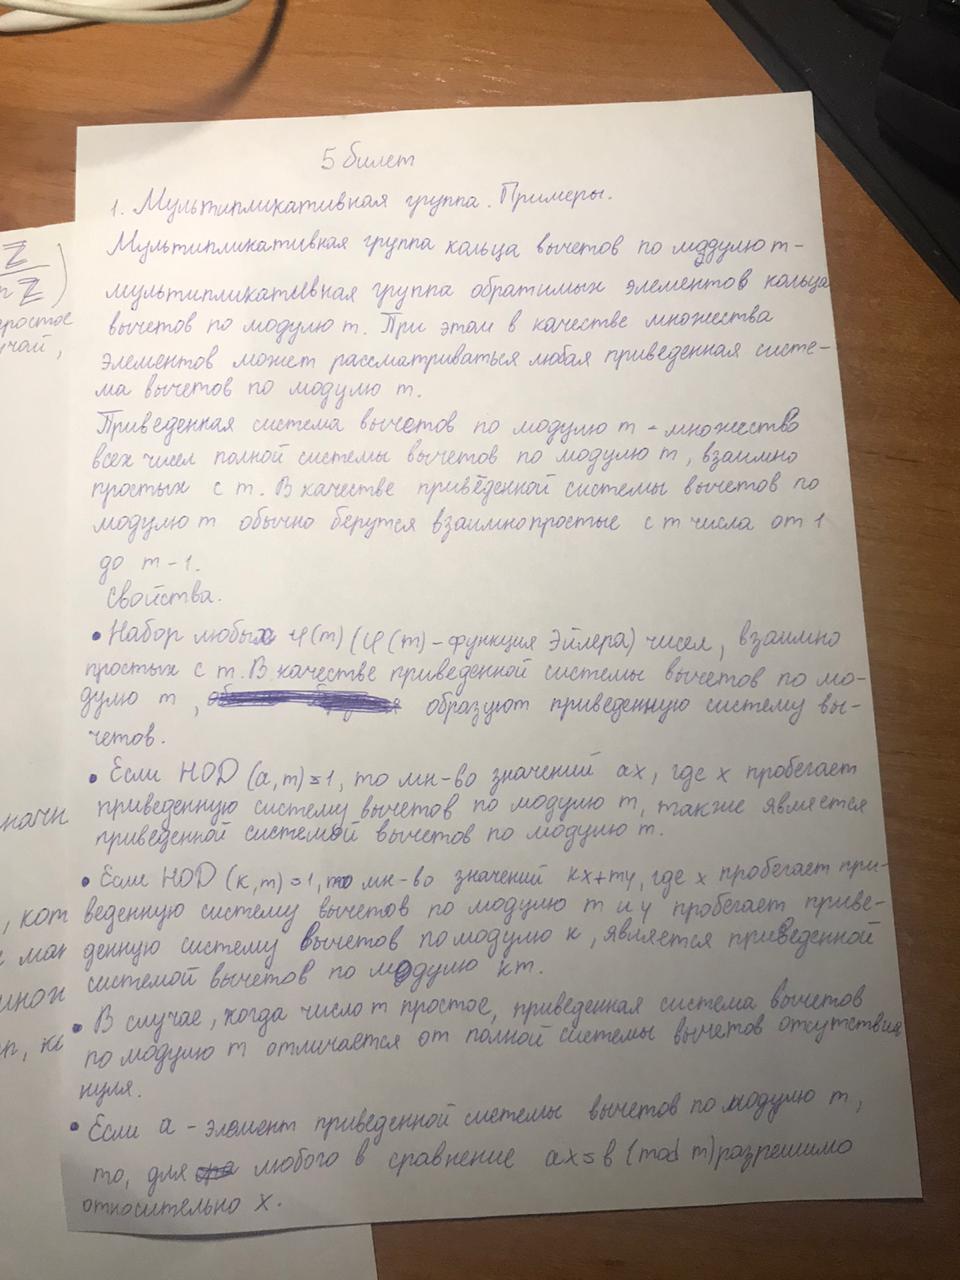 5 билет
1. Мультипликативная группа. Примеры.
Мультипликативная группа кольца вычетов по модулю m –
мультипликативная группа обратимых элементов кольца
вычетов по модулю m. При этом в качестве множества
элементов может рассматриваться любая приведенная систе-
ма вычетов по модулю m.
Приведенная система вычетов по модулю m – множество
всех чисел полной системы вычетов по модулю m, взаимно
простых с m. В качестве приведённой системы вычетов по
модулю m обычно берутся взаимнопростые с m числа от 1
до m – 1.
Свойства.
• Набор любых φ(m) (φ(m) – функция Эйлера) чисел, взаимно
простых с m. В качестве приведенной системы вычетов по мо-
дулю m, образуют приведенную систему вы-
четов.
• Если НОD (a, m) = 1, то мн-во значений ax, где x пробегает
приведенную систему вычетов по модулю m, также является
приведенной системой вычетов по модулю m.
• Если НОD (k, m) = 1, то мн-во значений kx+my, где x пробегает при-
веденную систему вычетов по модулю m и y пробегает приве-
денную систему вычетов по модулю k, является приведенной
системой вычетов по модулю km.
• В случае, когда число m простое, приведенная система вычетов
по модулю m отличается от полной системы вычетов отсутствия
нуля.
• Если a – элемент приведенной системы вычетов по модулю m,
то, для любого в сравнение ax ≡ в (mod m) разрешимо
относительно x.
Z
nZ)
простое
учай,
начн
, кот